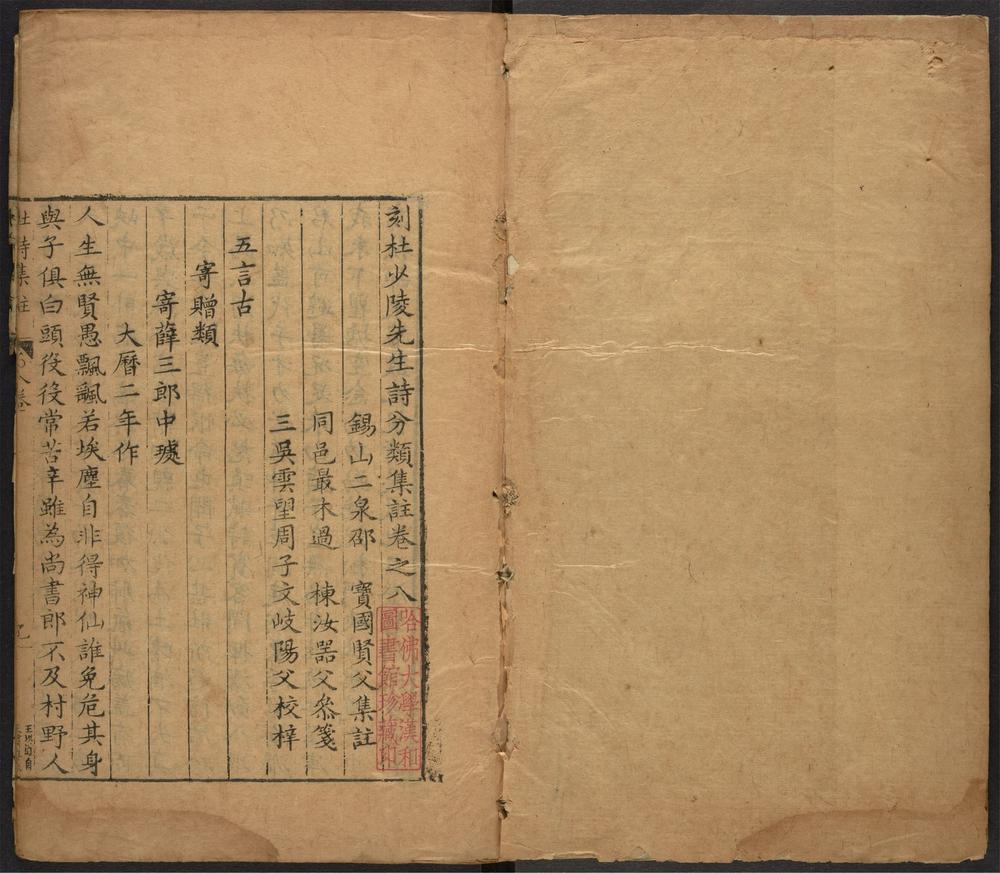 刻杜少陵先生詩分類集註卷之八
錫山二泉邵　寶國賢父集註
同邑最木過　棟汝器父叅箋
三吳雲望周子文岐陽父校梓
五言古
寄贈類
寄薛三郎中璩
大曆二年作
人生無賢愚飄飄若埃塵自非得神仙誰免危其身
與子俱白頭役役常苦辛雖為尚書郎不及村野人
杜詩集註
八卷
哈佛大學漢和
圖書館珍藏印